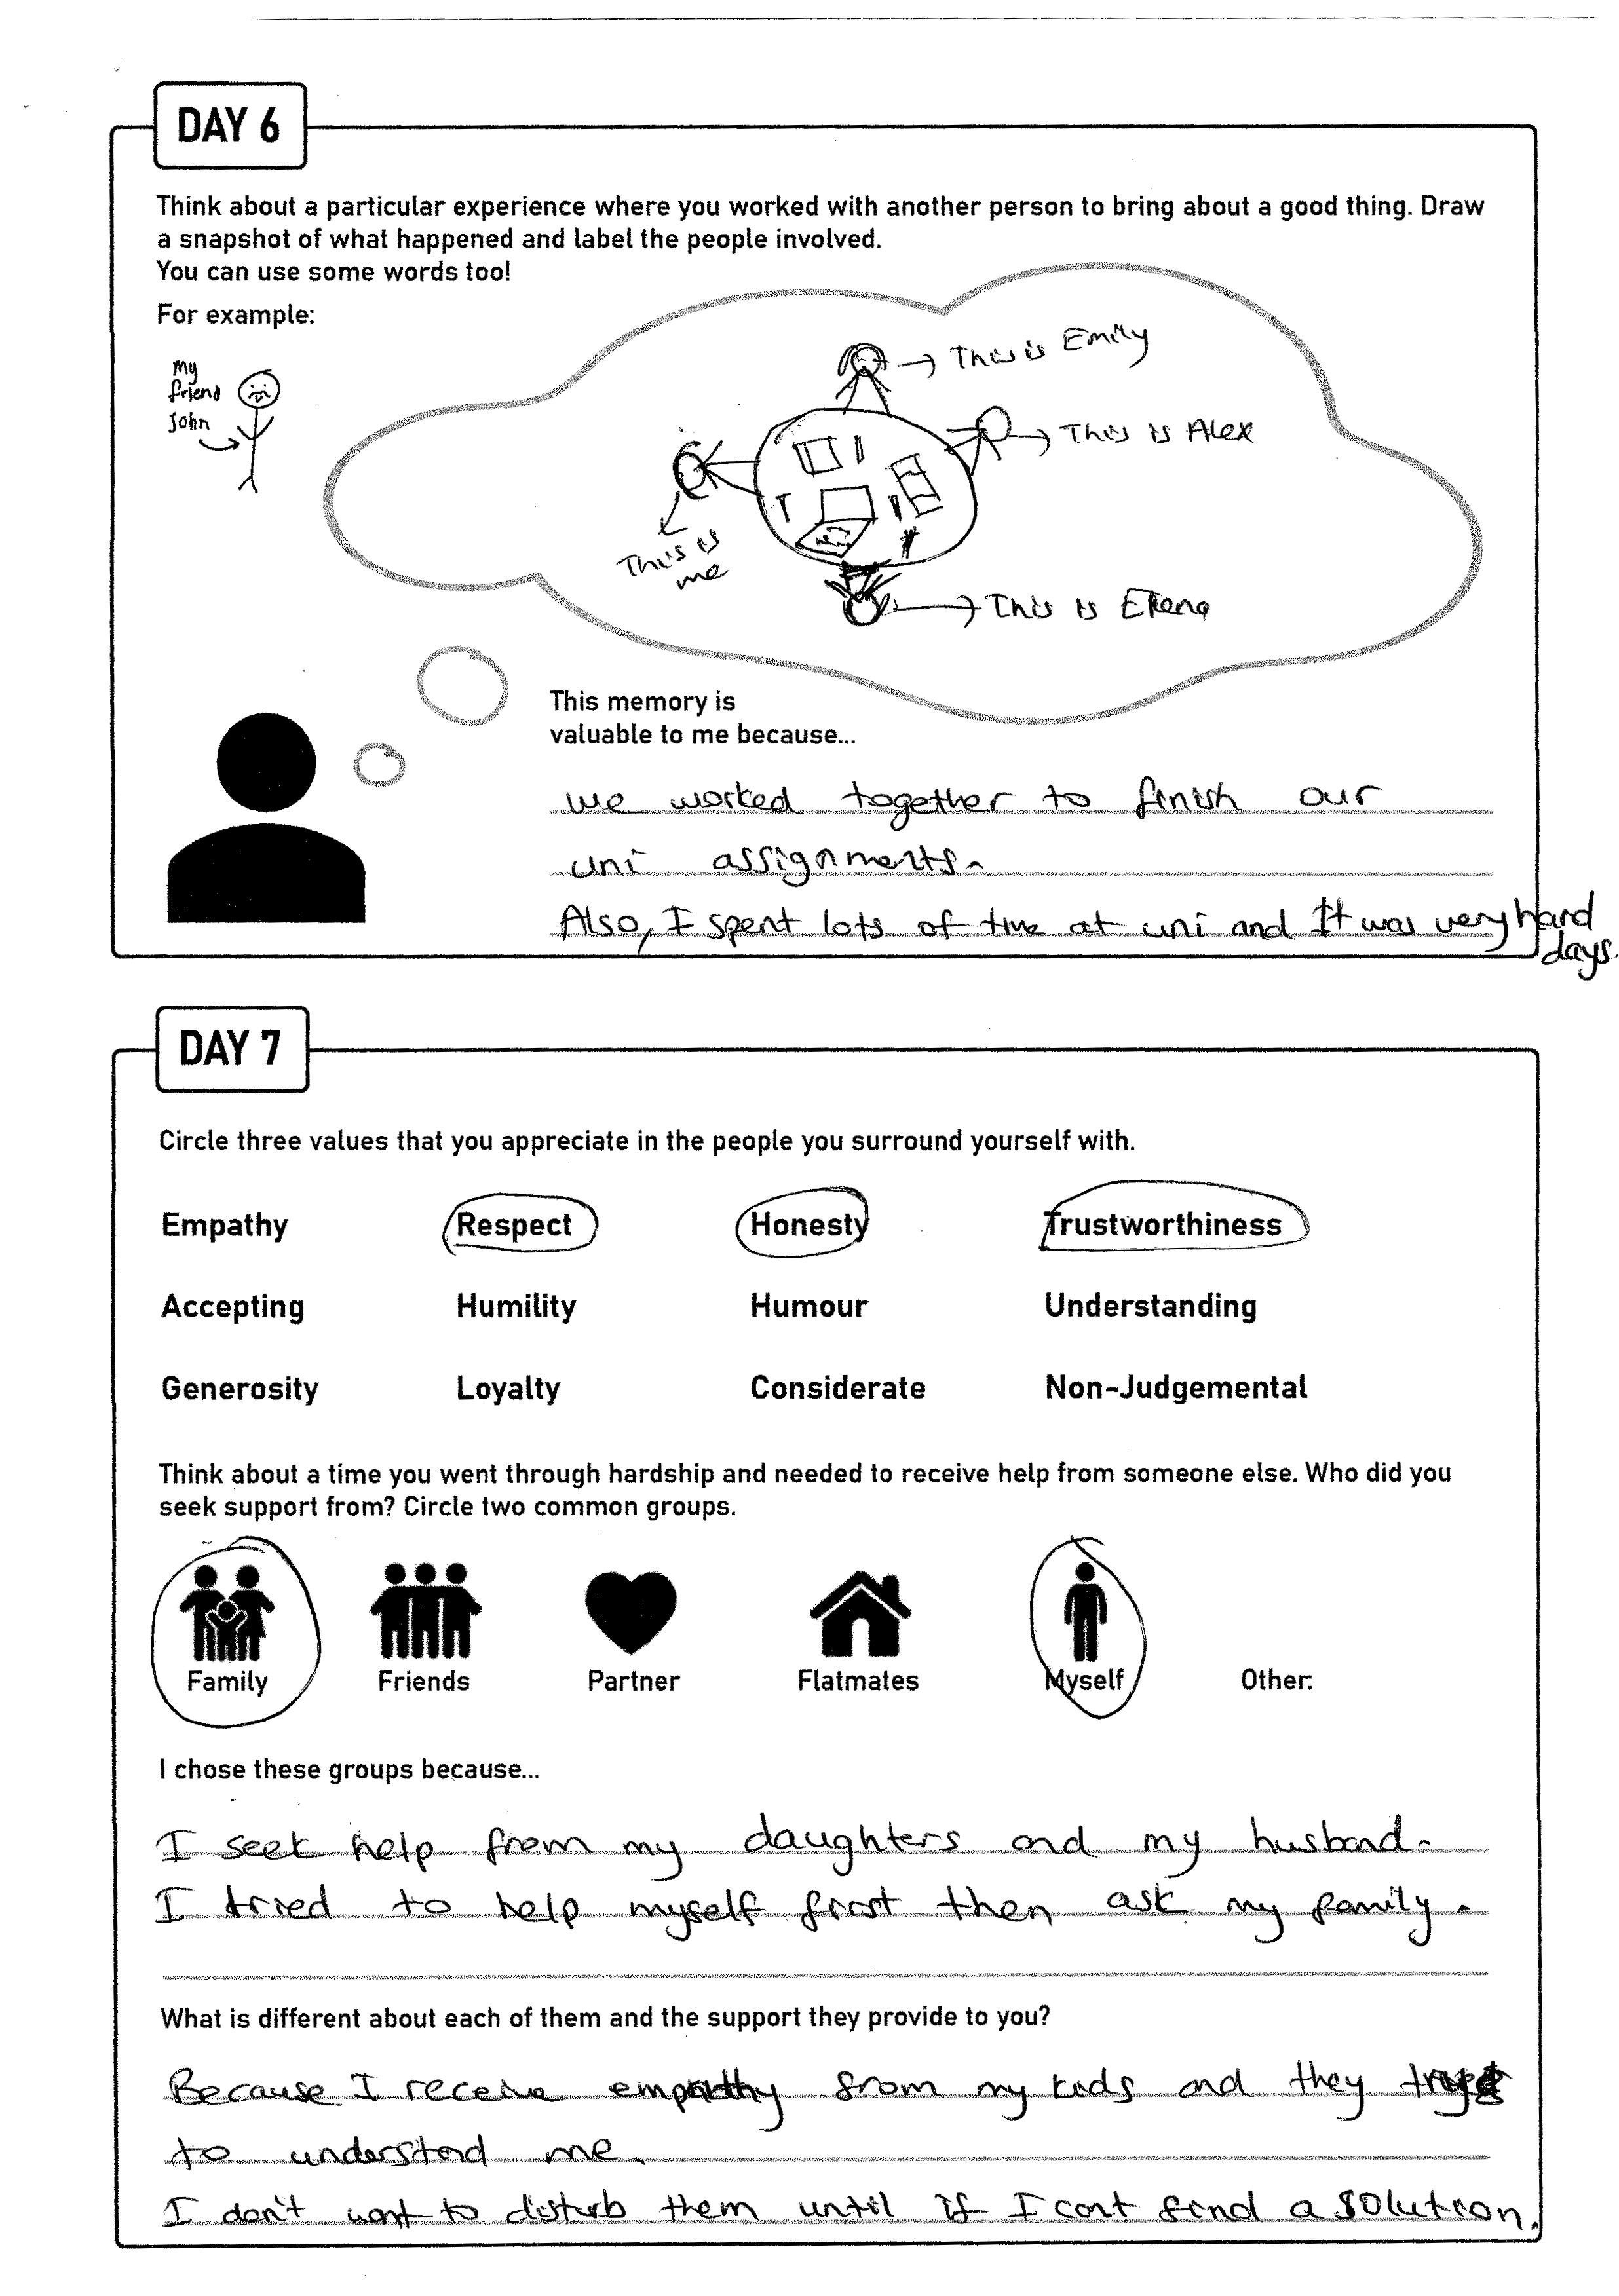 DAY 6
Think about a particular experience where you worked with another person to bring about a good thing. Draw
a snapshot of what happened and label the people involved.
You can use some words too!
For example:
My
friend
John
This is Emily
This is Alex
This is
me
This is Elena
This memory is
valuable to me because...
we worked together to finish our
uni assignments.
Also, I spent lots of time at uni and It was very hard
days.
DAY 7
Circle three values that you appreciate in the people you surround yourself with.
Empathy Respect Honesty Trustworthiness
Accepting Humility Humour Understanding
Generosity Loyalty Considerate Non-Judgemental
Think about a time you went through hardship and needed to receive help from someone else. Who did you
seek support from? Circle two common groups.
Family Friends Partner Flatmates Myself Other:
I chose these groups because...
I seek help from my daughters and my husband.
I tried to help myself first then ask my family.
What is different about each of them and the support they provide to you?
Because I receive empathy from my kids and they
to understand me.
I don't want to disturb them until if I cant find a solution.